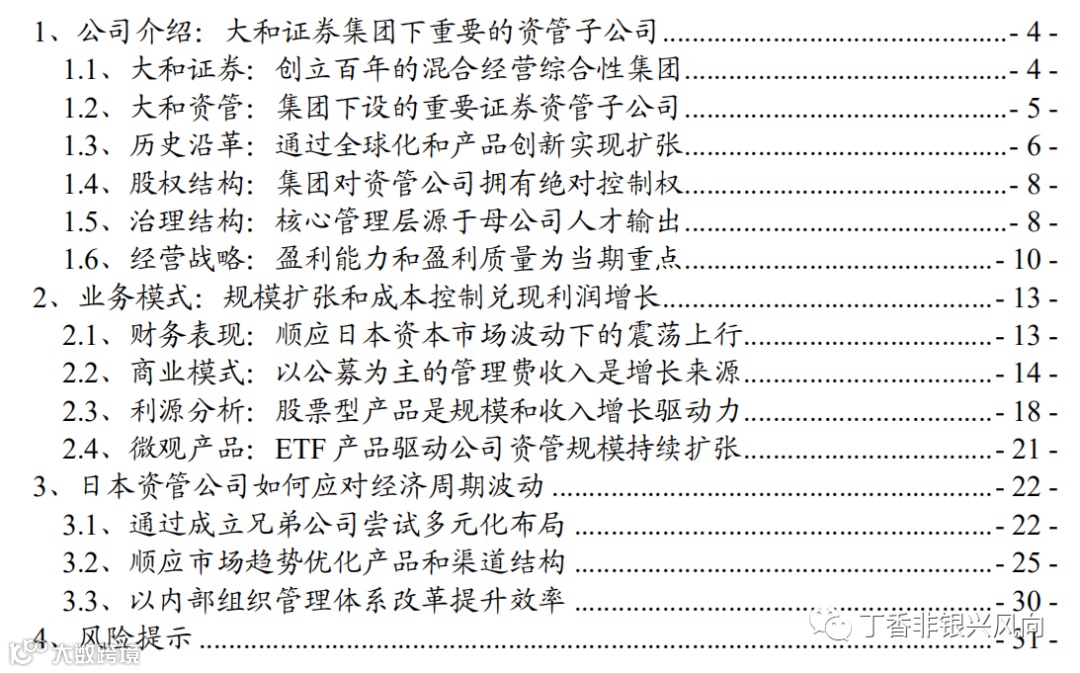 1、公司介绍：大和证券集团下重要的资管子公司........................................- 4 -
1.1、大和证券：创立百年的混合经营综合性集团........................................- 4 -
1.2、大和资管：集团下设的重要证券资管子公司........................................- 5 -
1.3、历史沿革：通过全球化和产品创新实现扩张........................................- 6 -
1.4、股权结构：集团对资管公司拥有绝对控制权........................................- 8 -
1.5、治理结构：核心管理层源于母公司人才输出........................................- 8 -
1.6、经营战略：盈利能力和盈利质量为当期重点......................................- 10 -
2、业务模式：规模扩张和成本控制兑现利润增长......................................- 13 -
2.1、财务表现：顺应日本资本市场波动下的震荡上行..............................- 13 -
2.2、商业模式：以公募为主的管理费收入是增长来源..............................- 14 -
2.3、利源分析：股票型产品是规模和收入增长驱动力..............................- 18 -
2.4、微观产品：ETF 产品驱动公司资管规模持续扩张..............................- 21 -
3、日本资管公司如何应对经济周期波动 ....................................................- 22 -
3.1、通过成立兄弟公司尝试多元化布局 ..................................................- 22 -
3.2、顺应市场趋势优化产品和渠道结构 ..................................................- 25 -
3.3、以内部组织管理体系改革提升效率 ..................................................- 30 -
4、风险提示 ..............................................................................................- 31 -
丁香非银兴风向
大数跨境